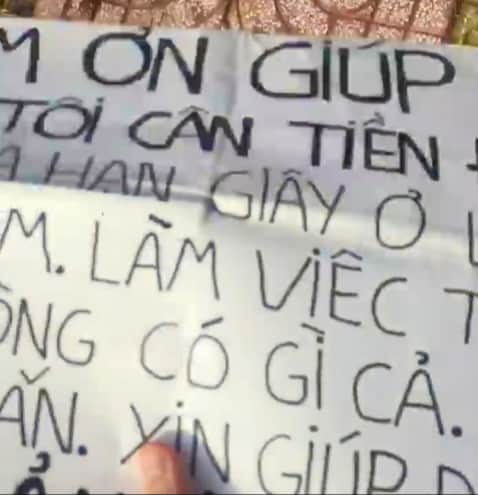 M ƠN GIÚP
TÔI CẦN TIỀN
HAN GIẤY Ở
M. LÀM VIỆC T
ÔNG CÓ GÌ CẢ.
ẨN. XIN GIÚP